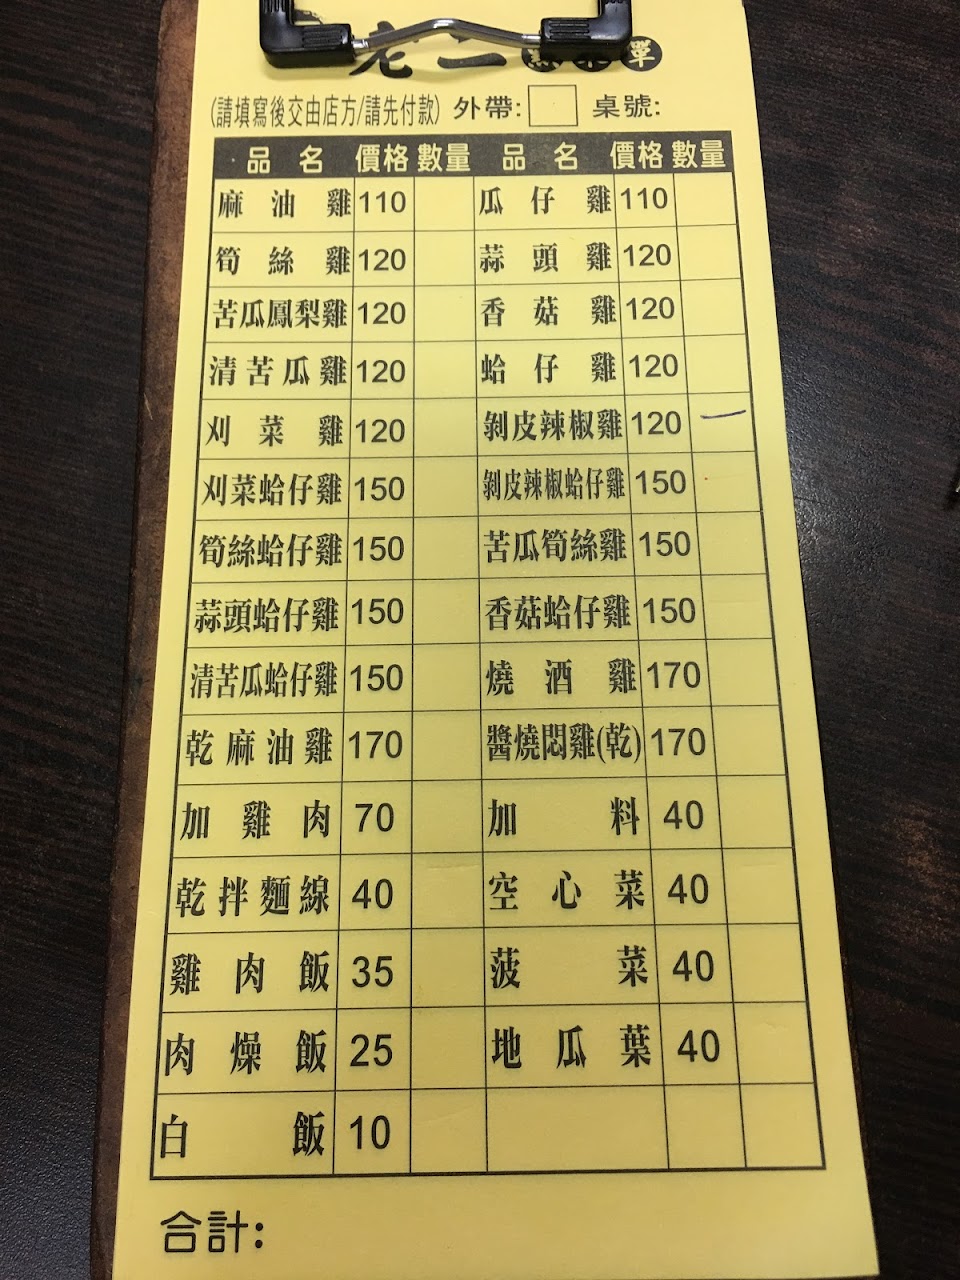 老二點菜單
(請填寫後交由店方/請先付款) 外帶: 桌號:
品名 價格 數量 品名 價格 數量
麻油雞 110 瓜仔雞 110
筍絲雞 120 蒜頭雞 120
苦瓜鳳梨雞 120 香菇雞 120
清苦瓜雞 120 蛤仔雞 120
刈菜雞 120 剝皮辣椒雞 120 一
刈菜蛤仔雞 150 剝皮辣椒蛤仔雞 150
筍絲蛤仔雞 150 苦瓜筍絲雞 150
蒜頭蛤仔雞 150 香菇蛤仔雞 150
清苦瓜蛤仔雞 150 燒酒雞 170
乾麻油雞 170 醬燒悶雞(乾) 170
加雞肉 70 加料 40
乾拌麵線 40 空心菜 40
雞肉飯 35 菠菜 40
肉燥飯 25 地瓜葉 40
白飯 10
合計: